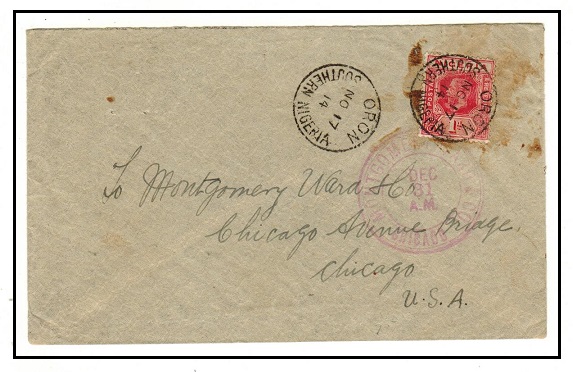 ORON
NO 17
14
SOUTHERN NIGERIA
ORON
NO 17
14
SOUTHERN NIGERIA
POSTAGE
1d
DEC
31
A.M.
CHICAGO
To Montgomery Ward & Co.
Chicago Avenue Bridge.
Chicago
U.S.A.